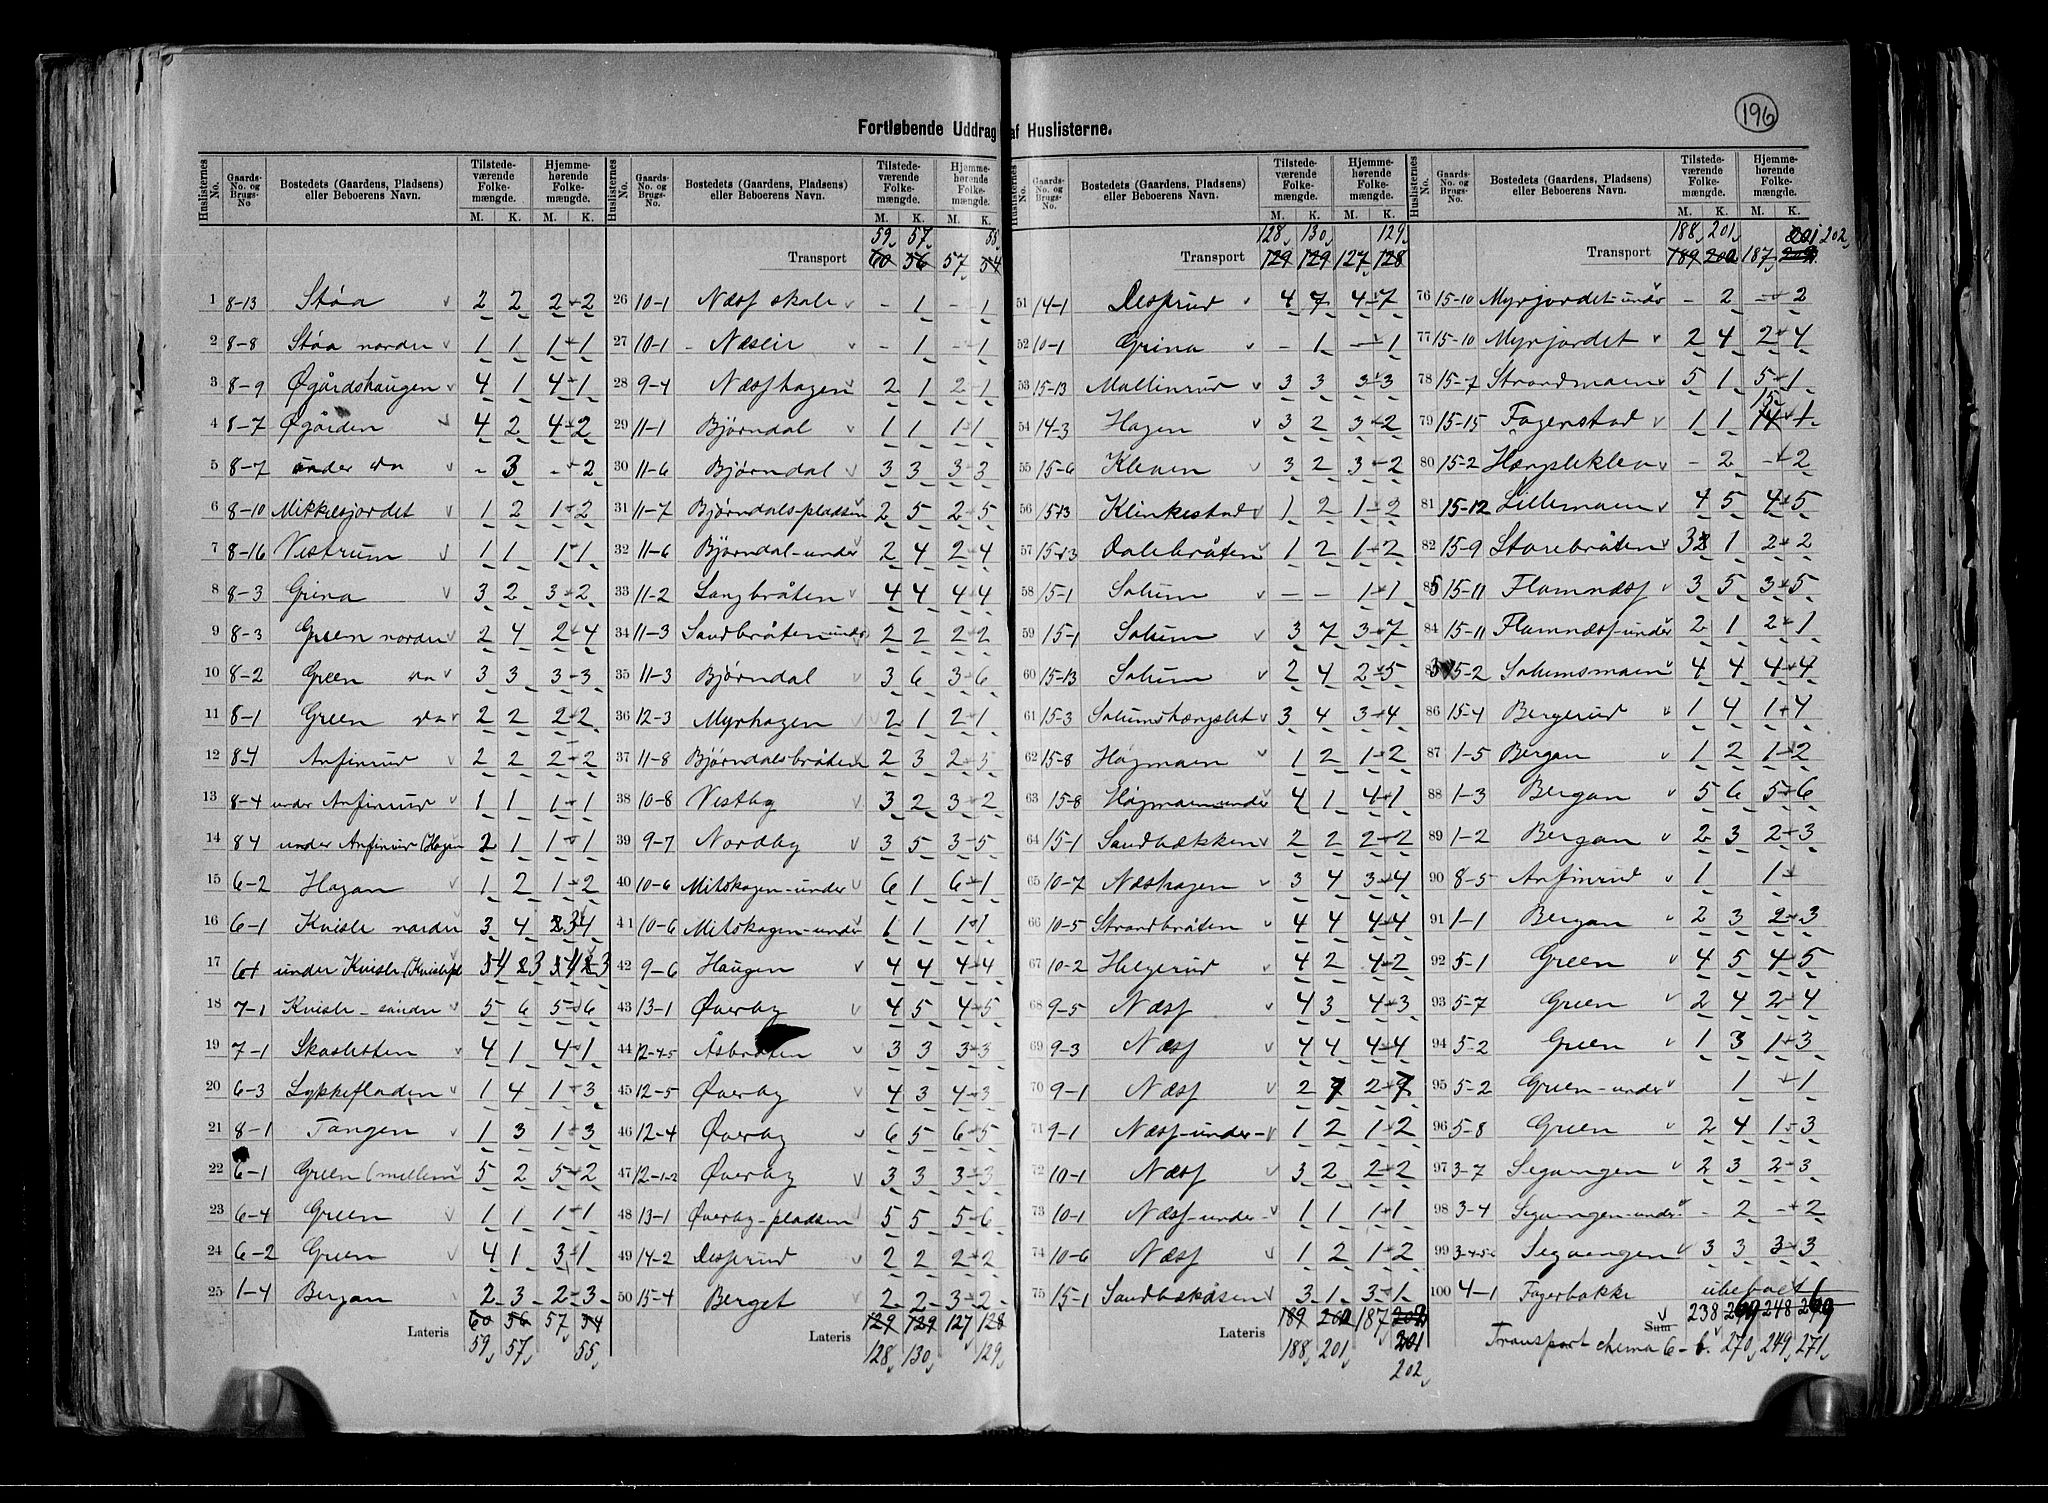 196
Fortløbende Uddrag af Huslisterne.
Huslisternes No. Gaards-No. og Brugs-No. Bostedets (Gaardens, Pladsens) eller Beboerens Navn. Tilstedeværende Folkemængde. M. K. Hjemmehørende Folkemængde. M. K.
1 8-13 Støa 2 2 2 2
2 8-8 Støa nordre 1 1 1 1
3 8-9 Øgårdshaugen 4 1 4 1
4 8-7 Øgården 4 2 4 2
5 8-7 under do - 3 - 2
6 8-10 Mikkelsjordet 1 2 1 2
7 8-16 Vestrum 1 1 1 1
8 8-3 Grina 3 2 3 2
9 8-3 Green nordre 2 4 2 4
10 8-2 Green do 3 3 3 3
11 8-1 Green do 2 2 2 2
12 8-4 Anfinrud 2 2 2 2
13 8-4 under Anfinrud 1 1 1 1
14 84 under Anfinrud (Hagen 2 1 1 1
15 6-2 Hagan 1 2 1 2
16 6-1 Kvisle nordre 3 4 3 4
17 6-1 under Kvisle 4 3 4 3
18 7-1 Kvisle søndre 5 6 5 6
19 7-1 Skasletten 4 1 4 1
20 6-3 Lykkefladen 1 4 1 3
21 8-1 Tangen 1 3 1 3
22 6-1 Green (mellem 5 2 5 2
23 6-4 Green 1 1 1 1
24 6-2 Green 4 1 3 1
25 1-4 Bergan 2 3 2 3
Lateris 60 56 57 54
59 57 55
Huslisternes No. Gaards-No. og Brugs-No. Bostedets (Gaardens, Pladsens) eller Beboerens Navn. Tilstedeværende Folkemængde. M. K. Hjemmehørende Folkemængde. M. K.
59 57 55
Transport 60 56 57 54
26 10-1 Næss skole - 1 - 1
27 10-1 Næseie - 1 - 1
28 9-4 Næsshagen 2 1 2 1
29 11-1 Bjørndal 1 1 1 1
30 11-6 Bjørndal 3 3 3 3
31 11-7 Bjørndals-pladsen 2 5 2 5
32 11-6 Bjørndal-under 2 4 2 4
33 11-2 Langbråten 4 4 4 4
34 11-3 Sandbråten under 2 2 2 2
35 11-3 Bjørndal 3 6 3 6
36 12-3 Myrhagen 2 1 2 1
37 11-8 Bjørndalsbråten 2 3 2 5
38 10-8 Vestby 3 2 3 2
39 9-7 Nordby 3 5 3 5
40 10-6 Mitskogen-under 6 1 6 1
41 10-6 Mitskogen-under 1 1 1 1
42 9-6 Haugen 4 4 4 4
43 13-1 Øverby 4 5 4 5
44 12-4-5 Åsbråten 3 3 3 3
45 12-5 Øverby 4 3 4 3
46 12-4 Øverby 6 5 6 5
47 12-1-2 Øverby 3 3 3 3
48 13-1 Øverby-pladsen 5 5 5 6
49 14-2 Desserud 2 2 2 2
50 15-4 Berget 2 2 3 2
Lateris 129 129 127 128
128 130 129
Huslisternes No. Gaards-No. og Brugs-No. Bostedets (Gaardens, Pladsens) eller Beboerens Navn. Tilstedeværende Folkemængde. M. K. Hjemmehørende Folkemængde. M. K.
128 130 129
Transport 129 129 127 128
51 14-1 Desserud 4 7 4 7
52 10-1 Grina - 1 - 1
53 15-13 Mallinrud 3 3 3 3
54 14-3 Hagen 3 2 3 2
55 15-6 Kleven 3 2 3 2
56 15-13 Klinkestad 1 2 1 2
57 15-13 Dalebråten 1 2 1 2
58 15-1 Solum - - 1 1
59 15-1 Solum 3 7 3 7
60 15-13 Solum 2 4 2 5
61 15-3 Solumshængslet 3 4 3 4
62 15-8 Høgmoen 1 2 1 2
63 15-8 Høgmoen under 4 1 4 1
64 15-1 Sandbækken 2 2 2 2
65 10-7 Næshagen 3 4 3 4
66 10-5 Strandbråten 4 4 4 4
67 10-2 Helgerud 4 2 4 2
68 9-5 Næss 4 3 4 3
69 9-3 Næss 4 4 4 4
70 9-1 Næss 2 7 2 7
71 9-1 Næss-under 1 2 1 2
72 10-1 Næss 3 2 2 2
73 10-1 Næss-under 1 1 1 1
74 10-6 Næss 1 2 1 2
75 15-1 Sandbækåsen 3 1 3 1
Lateris 189 200 187
188 201 201
202
Huslisternes No. Gaards-No. og Brugs-No. Bostedets (Gaardens, Pladsens) eller Beboerens Navn. Tilstedeværende Folkemængde. M. K. Hjemmehørende Folkemængde. M. K.
188 201 201 202
Transport 189 200 187
76 15-10 Myrjordet-under - 2 - 2
77 15-10 Myrjordet 2 4 2 4
78 15-7 Strandmoen 5 1 5 1
79 15-15 Fagerstad 1 1 1
80 15-2 Hængsleklev - 2 - 2
81 15-12 Lillemoen 4 5 4 5
82 15-9 Storebråten 3 1 2 2
83 15-11 Flomnæss 3 5 3 5
84 15-11 Flomnæss-under 2 1 2 1
85 15-2 Solumsmoen 4 4 4 4
86 15-4 Bergerud 1 4 1 4
87 1-5 Bergan 1 2 1 2
88 1-3 Bergan 5 6 5 6
89 1-2 Bergan 2 3 2 3
90 8-5 Anfinrud 1 1
91 1-1 Bergan 2 3 2 3
92 5-1 Green 4 5 4 5
93 5-7 Green 2 4 2 4
94 5-2 Green 1 3 1 3
95 5-2 Green-under 1 1
96 5-8 Green 2 4 1 3
97 3-7 Segvengen 2 3 2 3
98 3-4 Segvengen-under - 2 - 2
99 3-4-5 Segvengen 3 3 3 3
100 4-1 Fagerbakke ubeboet
Sum 238 269 248 269
Transport skema 6-b. 270 249 271